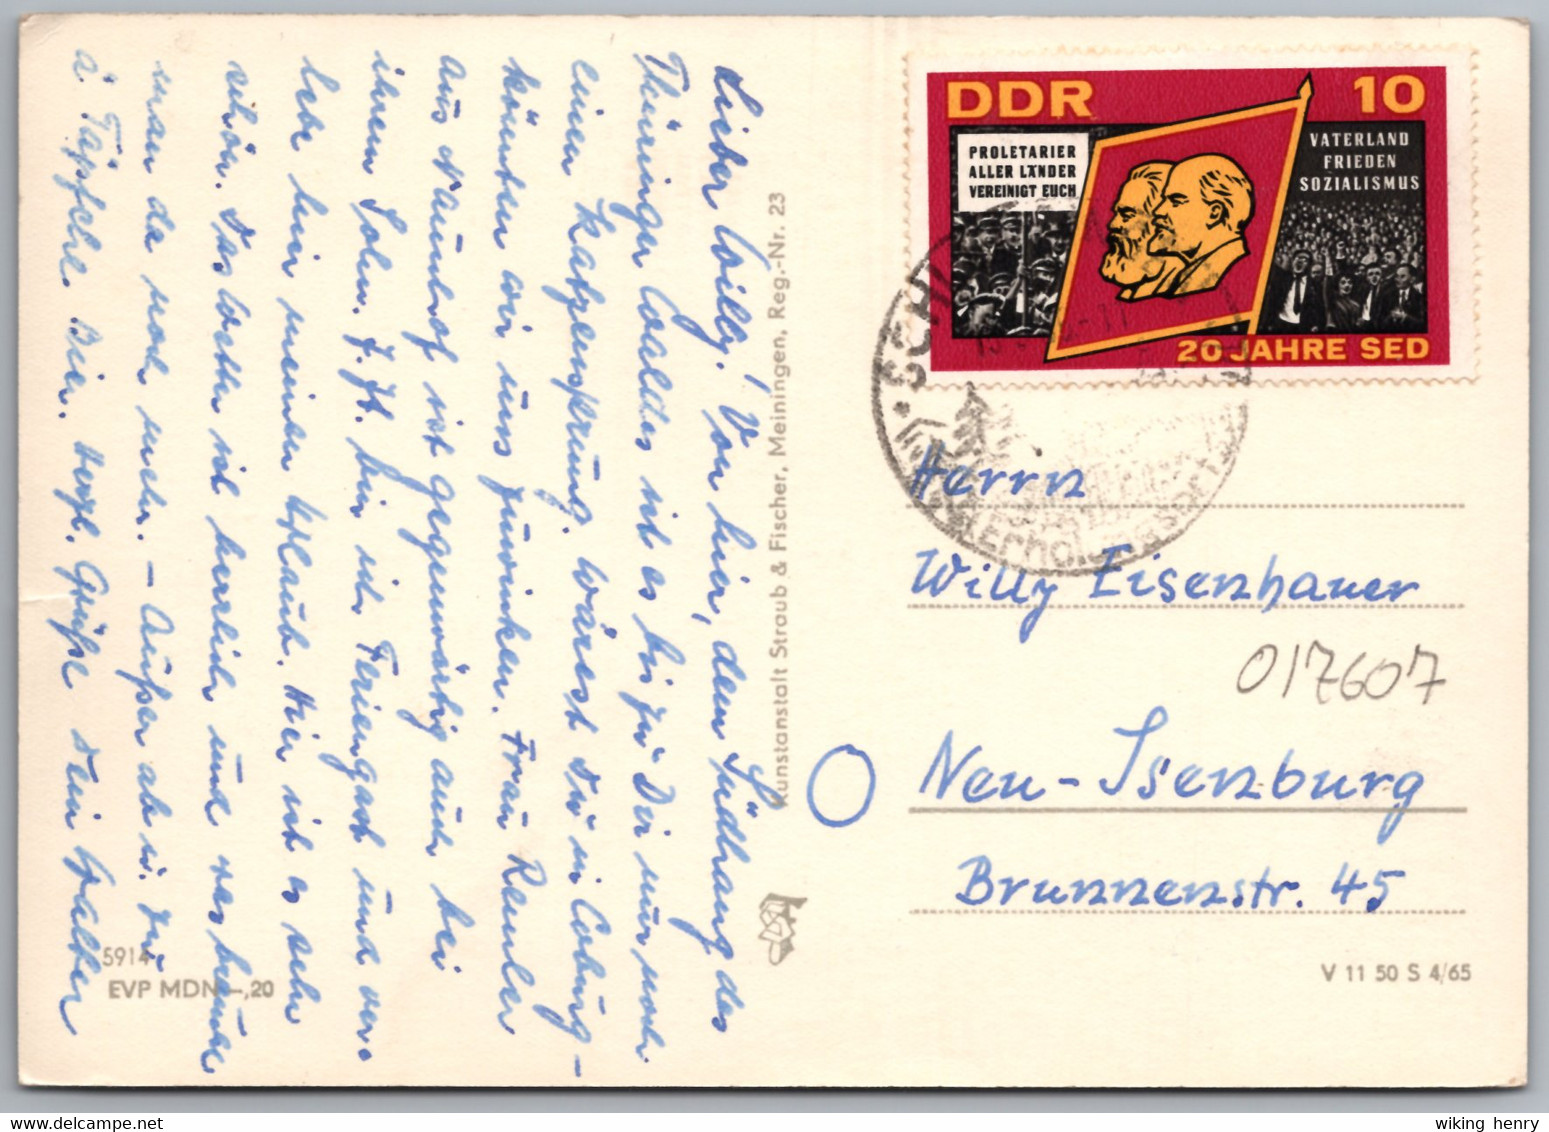 Lieber Willy! Von hier, dem Südhang des
Thüringer Waldes ist es bis zu Dir nur noch
einen Katzensprung. Wärest Du in Coburg –
könnten wir uns zuwinken. Frau Remler
aus Naunhof ist gegenwärtig auch bei
ihrem Sohn. Z. Zt. bin ich Feriengast und ver-
lebe hier meinen Urlaub. Hier ist es sehr
schön. Das Wetter ist herrlich und was braucht
man da noch mehr. – Außer ab u. zu
a Täpfche Bier. Herzl. Grüße Dein Walter
5914
EVP MDN –,20
Kunstanstalt Straub & Fischer, Meiningen, Reg.-Nr. 23
DDR 10
PROLETARIER
ALLER LÄNDER
VEREINIGT EUCH
VATERLAND
FRIEDEN
SOZIALISMUS
20 JAHRE SED
Herrn
Willy Eisenhauer
017607
Neu-Isenburg
Brunnenstr. 45
V 11 50 S 4/65
wiking henry